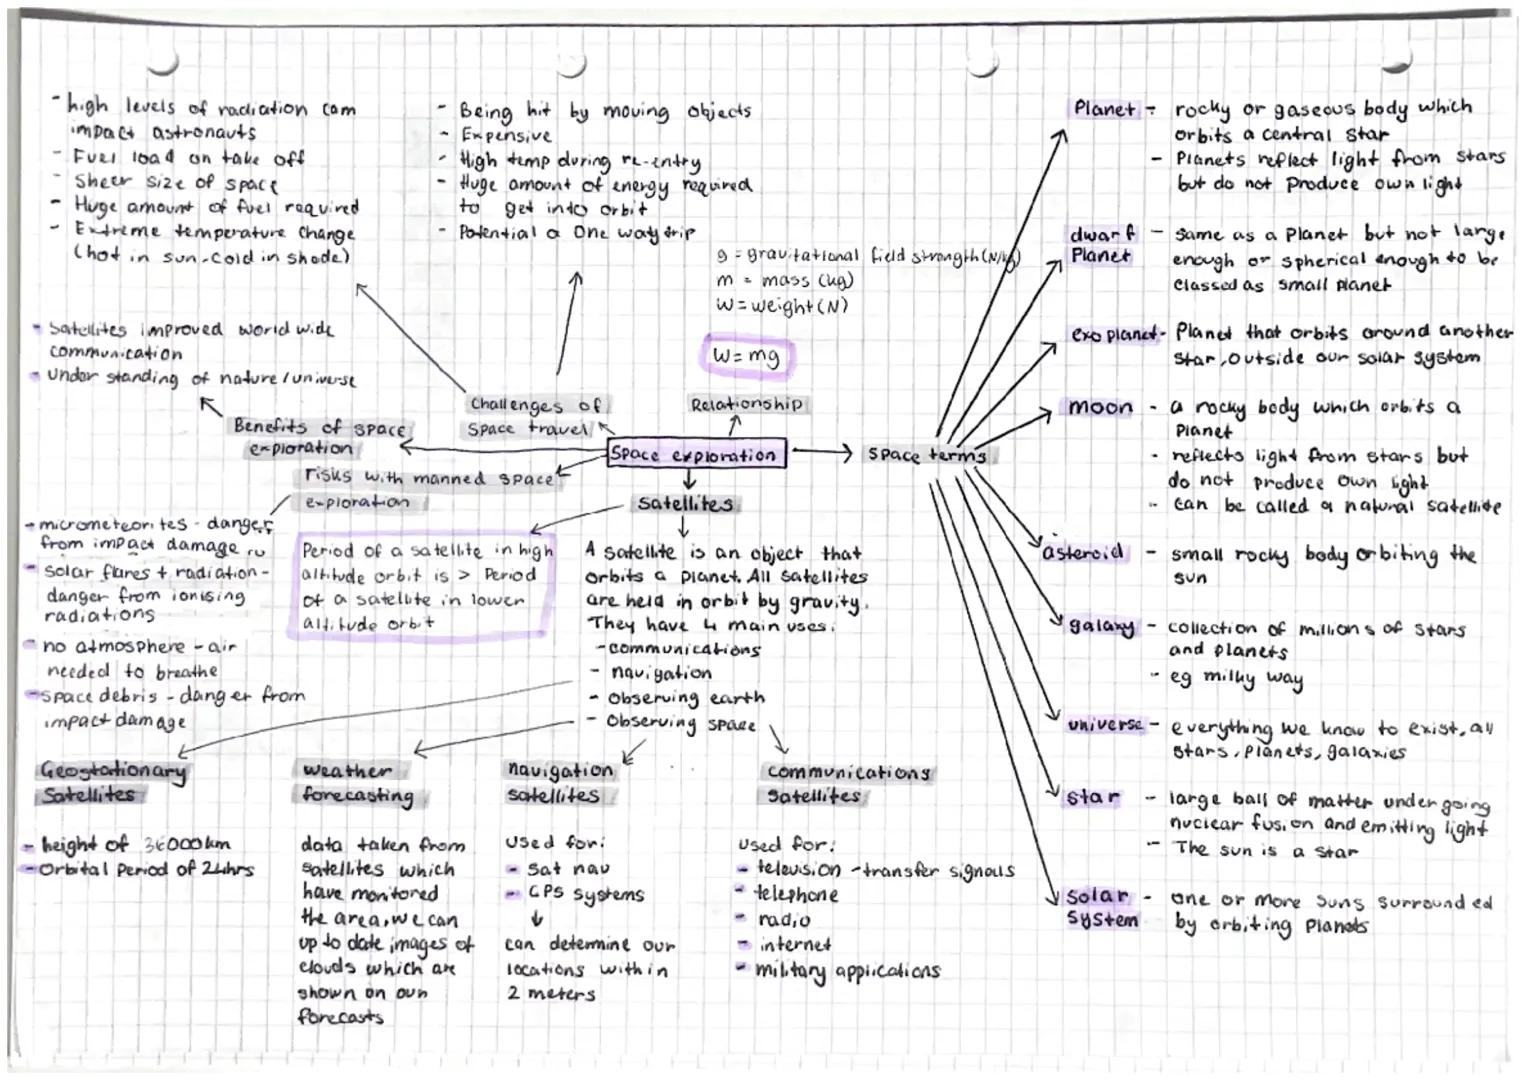 - high levels of radiation can
impact astronauts
- Fuel load on take off
- Sheer size of space
- Huge amount of fuel required
- Extreme temperature change
(hot in sun - cold in shade)
- Being hit by moving objects
- Expensive
- High temp during re-entry
- Huge amount of energy required
to get into orbit
- Potential a one way trip
g = gravitational field strength (N/kg)
m = mass (kg)
W = weight (N)
W = mg
Relationship
Challenges of
space travel
- Satellites improved world wide
communication
- understanding of nature / universe
Benefits of space
exploration
Space exploration
risks with manned space
exploration
- micrometeorites - danger
from impact damage
- solar flares + radiation -
danger from ionising
radiations
- no atmosphere - air
needed to breathe
- space debris - danger from
impact damage
Satellites
Period of a satellite in high
altitude orbit is > Period
of a satellite in lower
altitude orbit
A satellite is an object that
orbits a planet. All satellites
are held in orbit by gravity.
They have 4 main uses:
- communications
- navigation
- observing earth
- observing space
Geostationary
Satellites
- height of 36000km
- Orbital Period of 24hrs
weather
forecasting
data taken from
satellites which
have monitored
the area, we can
up to date images of
clouds which are
shown on our
forecasts
navigation
satellites
used for:
- Sat nav
- GPS systems
can determine our
locations within
2 meters
communications
satellites
used for:
- television - transfer signals
- telephone
- radio
- internet
- military applications
Space terms
Planet - rocky or gaseous body which
orbits a central star
- Planets reflect light from stars
but do not produce own light
dwarf - same as a planet but not large
Planet enough or spherical enough to be
classed as small planet
exoplanet - Planet that orbits around another
star, outside our solar system
moon - a rocky body which orbits a
planet
- reflects light from stars but
do not produce own light
- can be called a natural satellite
asteroid - small rocky body orbiting the
sun
galaxy - collection of millions of stars
and planets
- eg milky way
universe - everything we know to exist, all
stars, planets, galaxies
star - large ball of matter undergoing
nuclear fusion and emitting light
- The sun is a star
solar - one or more suns surrounded
system by orbiting planets